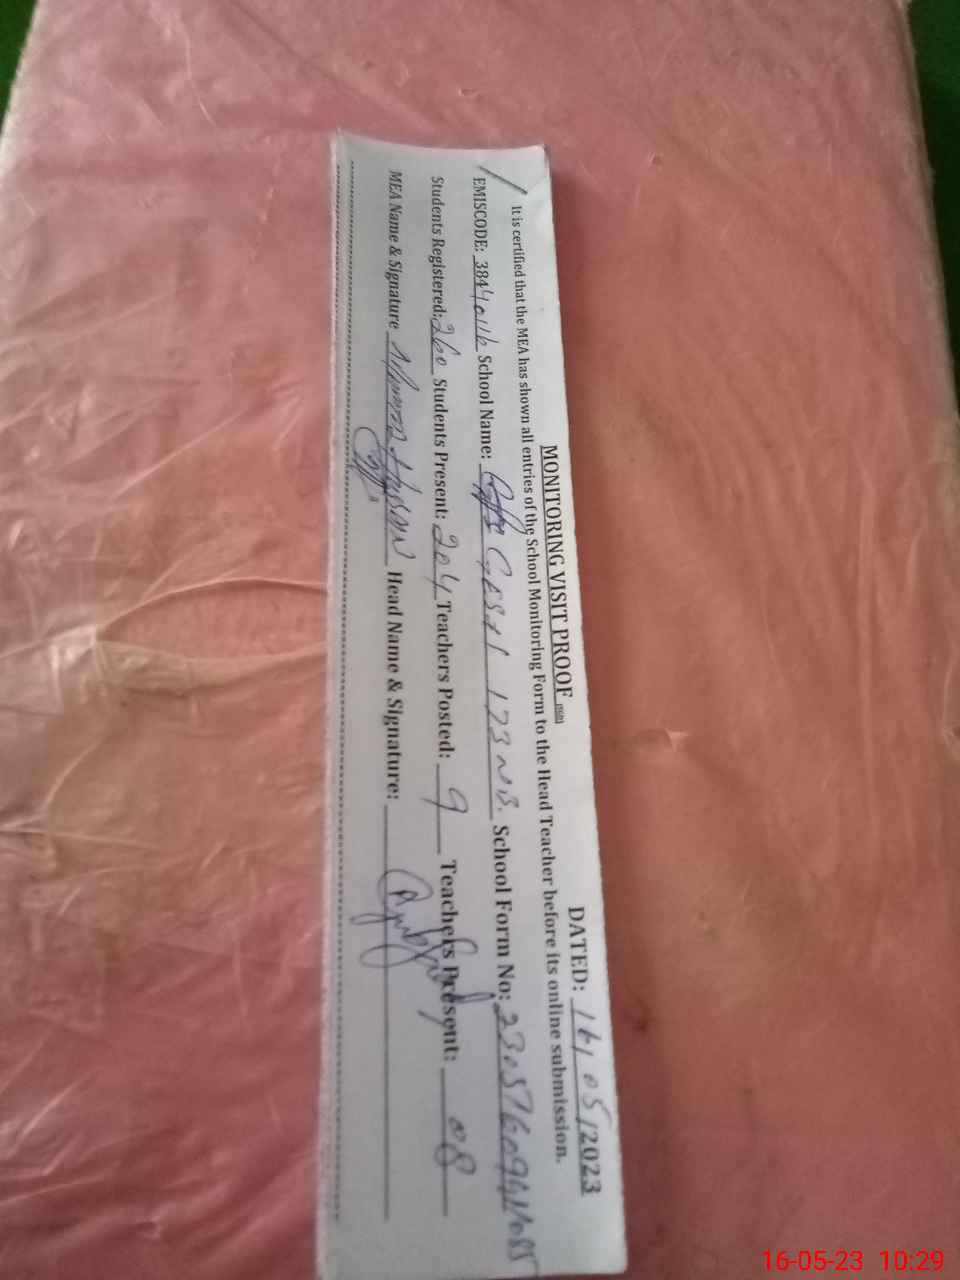 MONITORING VISIT PROOF
DATED: 16/05/2023
It is certified that the MEA has shown all entries of the School Monitoring Form to the Head Teacher before its online submission.
EMISCODE: 38440116 School Name: GES 173 NB. School Form No:
Students Registered: 260 Students Present: 204 Teachers Posted: 9 Teachers Present: 08
MEA Name & Signature Head Name & Signature:
16-05-23 10:29